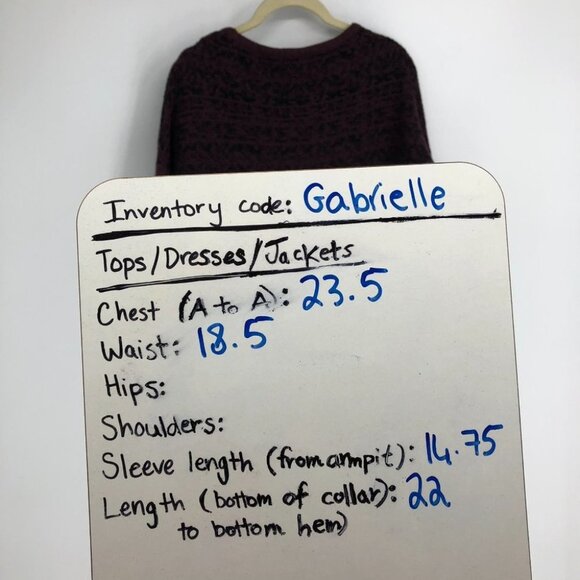 Inventory code: Gabrielle
Tops/Dresses/Jackets
Chest (A to A): 23.5
Waist: 18.5
Hips:
Shoulders:
Sleeve length (from armpit): 14.75
Length (bottom of collar): 22
to bottom hem)